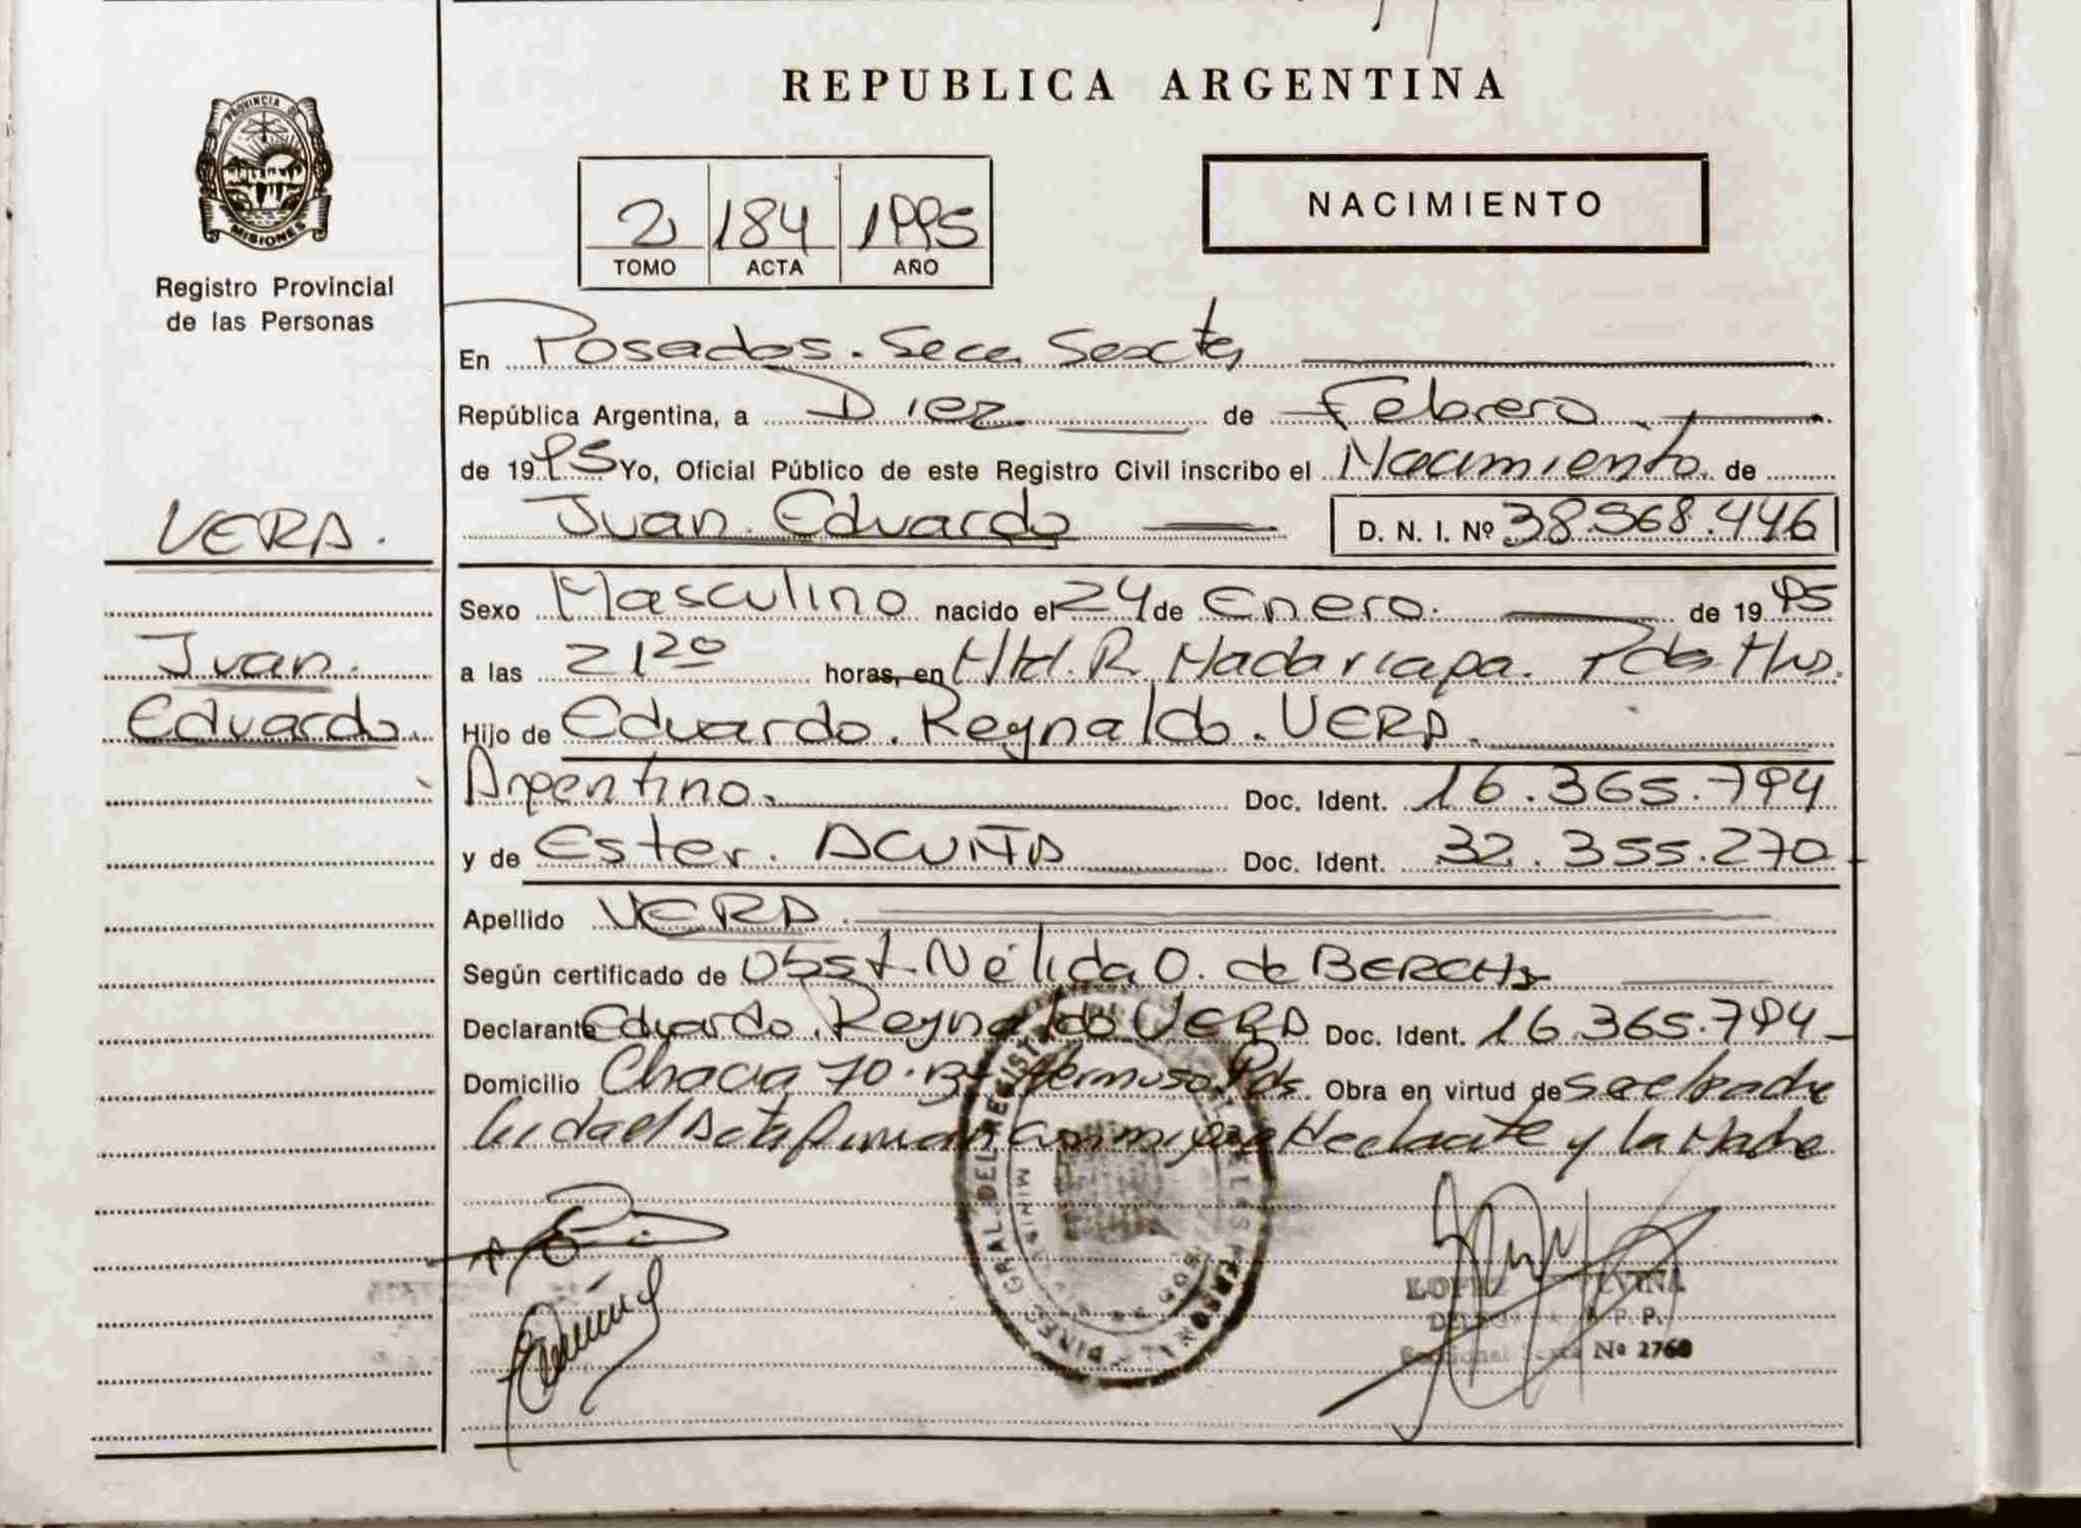 REPUBLICA ARGENTINA
PROVINCIA DE
MISIONES
Registro Provincial
de las Personas
2 184 1995
TOMO ACTA AÑO
NACIMIENTO
En Posadas. Secc Sexta
República Argentina, a Diez de Febrero
de 1995 Yo, Oficial Público de este Registro Civil inscribo el Nacimiento. de
VERA.
Juan Eduardo D. N. I. Nº 38.568.446
Sexo Masculino nacido el 24 de Enero. de 1995
Juan.
Eduardo.
a las 21 20 horas, en R. Madariaga. Pdas Mns.
Hijo de Eduardo. Reynaldo. VERA.
Argentino. Doc. Ident. 16.365.794
y de Ester. ACUÑA Doc. Ident. 32.355.270
Apellido VERA.
Según certificado de Obst. Nélida O. de
Declarante Eduardo. Reynaldo VERA Doc. Ident. 16.365.794
Domicilio Chacra 70. Bº Hermoso Pds. Obra en virtud de
Acta firman conmigo y la Madre
DIREC. GRAL. DEL REGISTRO DE LAS PERSONAS
LOPEZ
Nº 2760